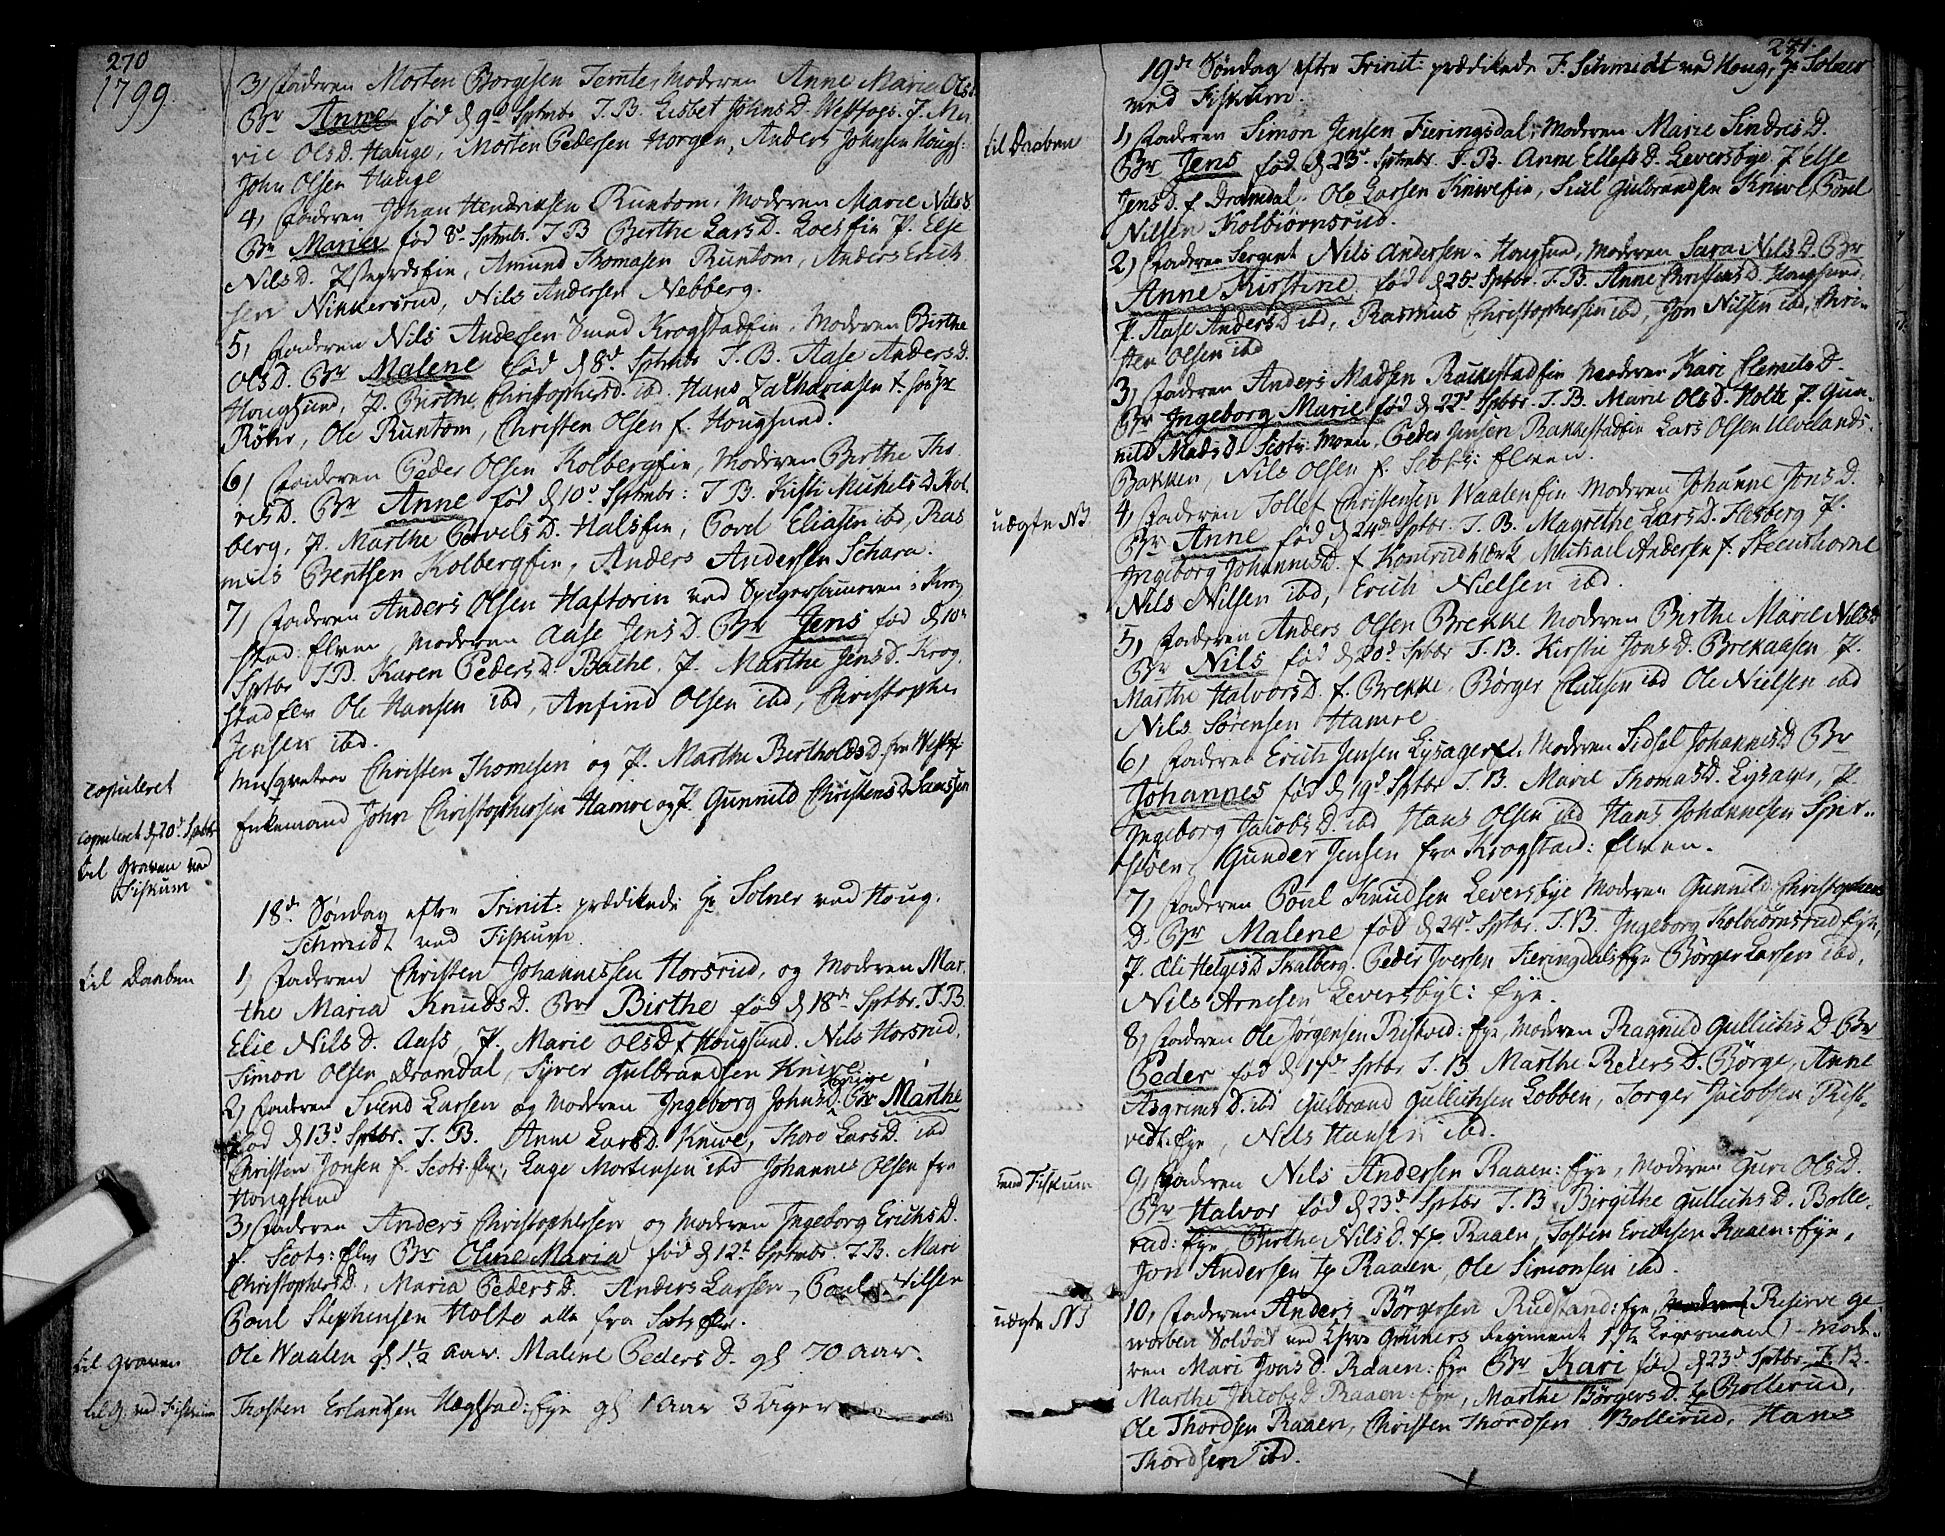 270
1799.
3, Faderen Morten Borgesen Temte, Moderen Anne Marie Ols D.
Br Anne fød d 9de Sptmbr. T. B. Lisbet Johns D. Westfos. P. Ma
rie Ols D. Hauge, Morten Pedersen Horgen, Anders Johnsen Hougs:
John Olsen Hauge
4, Faderen Johan Hendrichsen Runtom, Moderen Marie Nils D.
Br Maria fød 8de Sptmbr. T B Berthe Lars D. Loesfin P. Else
Nils D. Amund Thomasen Runtom, Anders Erich
sen Nikkersrud, Nils Andersen Nebberg.
5, Faderen Nils Andersen Smed Krogstadfin, Moderen Birthe
Ols D. Br Malene fød d 8de Sptmbr T. B. Aase Anders D.
Hougsund, P. Birthe Christophers D. ibd. Hans Zachariasen f.
Röhr, Ole Runtom, Christen Olsen f. Hougsund.
6, Faderen Peder Olsen Kolbergfin, Moderen Birthe Tho
res D. Br Anne fød d 10de Sptmbr: T. B. Kisti Michels D. Kol
berg, P. Marthe Povels D. Halsfin, Povel Eliasen ibd, Ras
mus Bentsen Kolbergfin, Anders Andersen Schara.
7, Faderen Anders Olsen Haftorin ved Spigerhameren i Krog
stad: Elven, Moderen Aase Jens D. Br Jens fød d 10de
Sptbr T. B. Karen Peders D. Bache. P. Marthe Jens D. Krog
stadelv Ole Hansen ibd, Anfind Olsen ibd, Christopher
Jensen ibd.
copuleret
Musqveteer Christen Thomesen og P. Marthe Bertholds D. fra Westf:
copuleret d 20de Sptbr
Enkemand John Christophersen Hamre og P. Gunnild Christens D.
til Graven ved
Fiskum
18de Søndag efter Trinit: prædikede Hr Solner ved Houg.
Schmidt ved Fiskum.
til Daaben
1, Faderen Christen Johannessen Horsrud, og Moderen Mar
the Maria Knuds D. Br Birthe fød d 18de Sptbr. T. B.
Elie Nils D. Aass P. Marie Ols D. f Hougsund. Nils Horsrud,
Simon Olsen Dramdal, Syver Gulbrandsen Knive
2, Faderen Svend Larsen og Moderen Ingeborg Johns D. Knive Br Marthe
fød d 13de Sptbr. T. B. Anne Lars D. Knive, Thore Lars D. ibd
Christen Jonsen f Scots: elv:, Lage Mortensen ibd Johannes Olsen fra
Hougsund
3, Faderen Anders Christophersen og Moderen Ingeborg Erichs D.
f. Scots: Elv Br Oline Maria fød d 12te Sptmbr. T. B. Mari
Christophers D., Maria Peders D. Anders Larsen, Poul Nilsen
Poul Stephensen Holte alle fra Scots elv.
til Graven
Ole Waalen gl 1½ Aar. Malene Peders D. gl 70 Aar.
til G. ved Fiskum
Thosten Erlandsen Hægstad: Eye gl 1 Aar 3 Uger
271.
19de Søndag efter Trinit: prædikede Hr. Schmidt ved Houg, Hr Solner
ved Fiskum.
til Daaben
1, Faderen Simon Jensen Fieringsdal, Moderen Marie Sindres D.
Br Jens fød d 23de Sptmbr. T. B. Anne Ellefs D. Leversbye, P. Else
Jens D. f. Dramdal. Ole Larsen Knivefin, Siul Gulbrandsen Knive Poul
Nilsen Kolbiørnsrud.
2, Faderen Sergent Nils Andersen i Hougsund, Moderen Sara Nils D. Br
Anne Kirstine fød d 25de Sptbr. T. B. Anne Christens D. Hougsund,
P. Aase Anders D ibd, Rasmus Christophersen ibd, Jon Nilsen ibd, Chri-
sten Olsen ibd
3, Faderen Anders Madsen Rackestadfin Moderen Kari Clemets D.
Br Ingeborg Marie fød d 22de Sptbr. T. B. Marie Ols D. Holte P. Gun-
nild Mads D. Scots: Moen, Peder Jensen Rakkestadfin Lars Olsen Ulevelands-
Bakken, Nils Olsen f. Scots: Elven.
uægte NB
4, Faderen Tollef Christensen Waalenfin Moderen Johanne Jons D.
Br Anne fød d 24de Sptbr. T. B. Magrethe Lars D. Flesberg P.
Ingeborg Johannes D. f Komrudværk Mikkail Andersen f. Steenshorne
Nils Nilsen ibd, Erich Nielsen ibd.
5, Faderen Anders Olsen Brekke Moderen Birthe Marie Nils D
Br Nils fød d 20de Sptbr T. B. Kirstie Jons D. Brekaasen, P.
Marthe Halvors D. f. Brekke. Børger Clausen ibd Ole Nielsen ibd
Nils Sørensen Hamre
6, Faderen Erich Jensen Lysager, Moderen Sidsel Johannes D Br
Johannes fød d 19de Sptbr T. B. Marie Thomas D. Lysager, P.
Ingeborg Jacobs D. ibd Hans Olsen ibd Hans Johannesen Spir-
Gunder Jensen fra Krogstad: Elven.
7, Faderen Poul Knudsen Leversbye Moderen Gunnild Christophers
D. Br Malene fød d 24de Sptbr. T. B. Ingeborg Kolbiørnsrud Eye,
P. Eli Helges D. Skalberg. Peder Iversen Fieringdals Eye Børger Larsen ibd,
Nils Arnesen Leversbye: Eye.
8, Faderen Ole Jørgensen Ristved: Eye, Moderen Ragnild Gullichs D Br
Peder fød d 17de Sptbr T. B. Marthe Peders D. Børge, Anne
Asgrims D. ibd Gulbrand Gullichsen Lobben, Torger Jacobsen Rist-
vedt: Eye, Nils Hansen ibd.
ved Fiskum
9, Faderen Nils Andersen Raaen: Eye, Moderen Guri Ols D.
Br Halvor fød d 23de Sptbr T. B. Birgithe Gullichs D. Bolle-
rud: Eye Birthe Nils D. f Raaen, Tosten Erichsen Raaen: Eye,
Jon Andersen f Raaen, Ole Simonsen ibd.
uægte NB
10, Faderen Anders Börgersen Rudstand: Eye, Reserve ge-
worben Soldat ved Gruners Regiment (1ste Leyersmaal) - Mode-
ren Mari Jons D. Raaen: Eye Br Kari fød d 23de Sptbr. T. B.
Marthe Jacobs D Raaen: Eye, Marthe Börgers D. f Bollerud,
Ole Thordsen Raaen, Christen Thordsen Bollerud, Hans
Thordsen ibd.